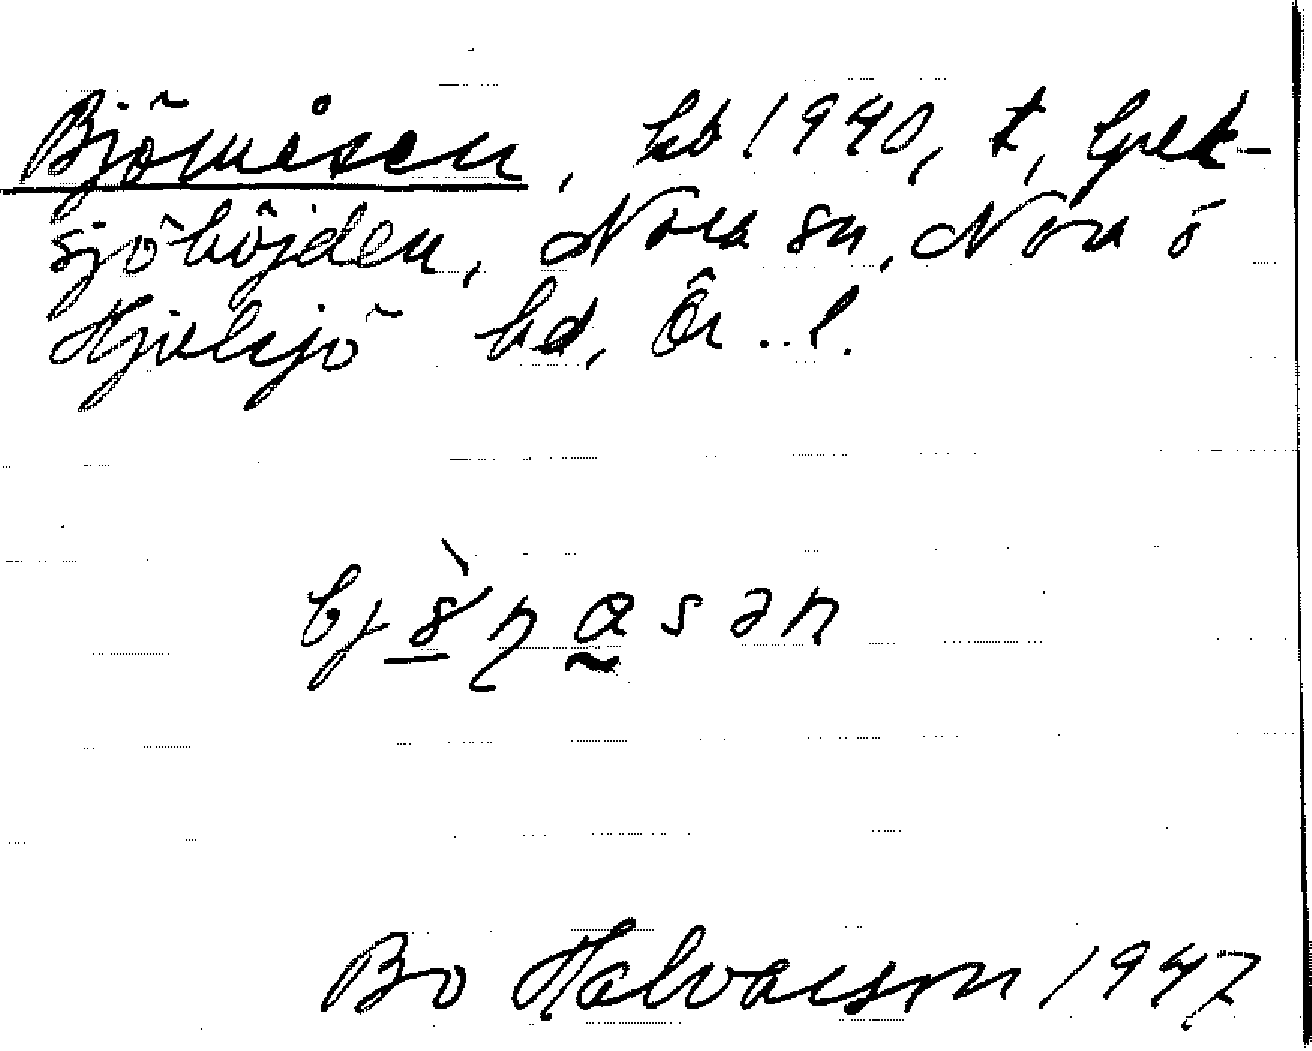 Björnåsen, hd 1940, t, Grek-
sjöhöjden, Nora sn, Nora o
Hjulsjö hd, Ör..l.
bjö̀ṇasən
Bo Halvarson 1947